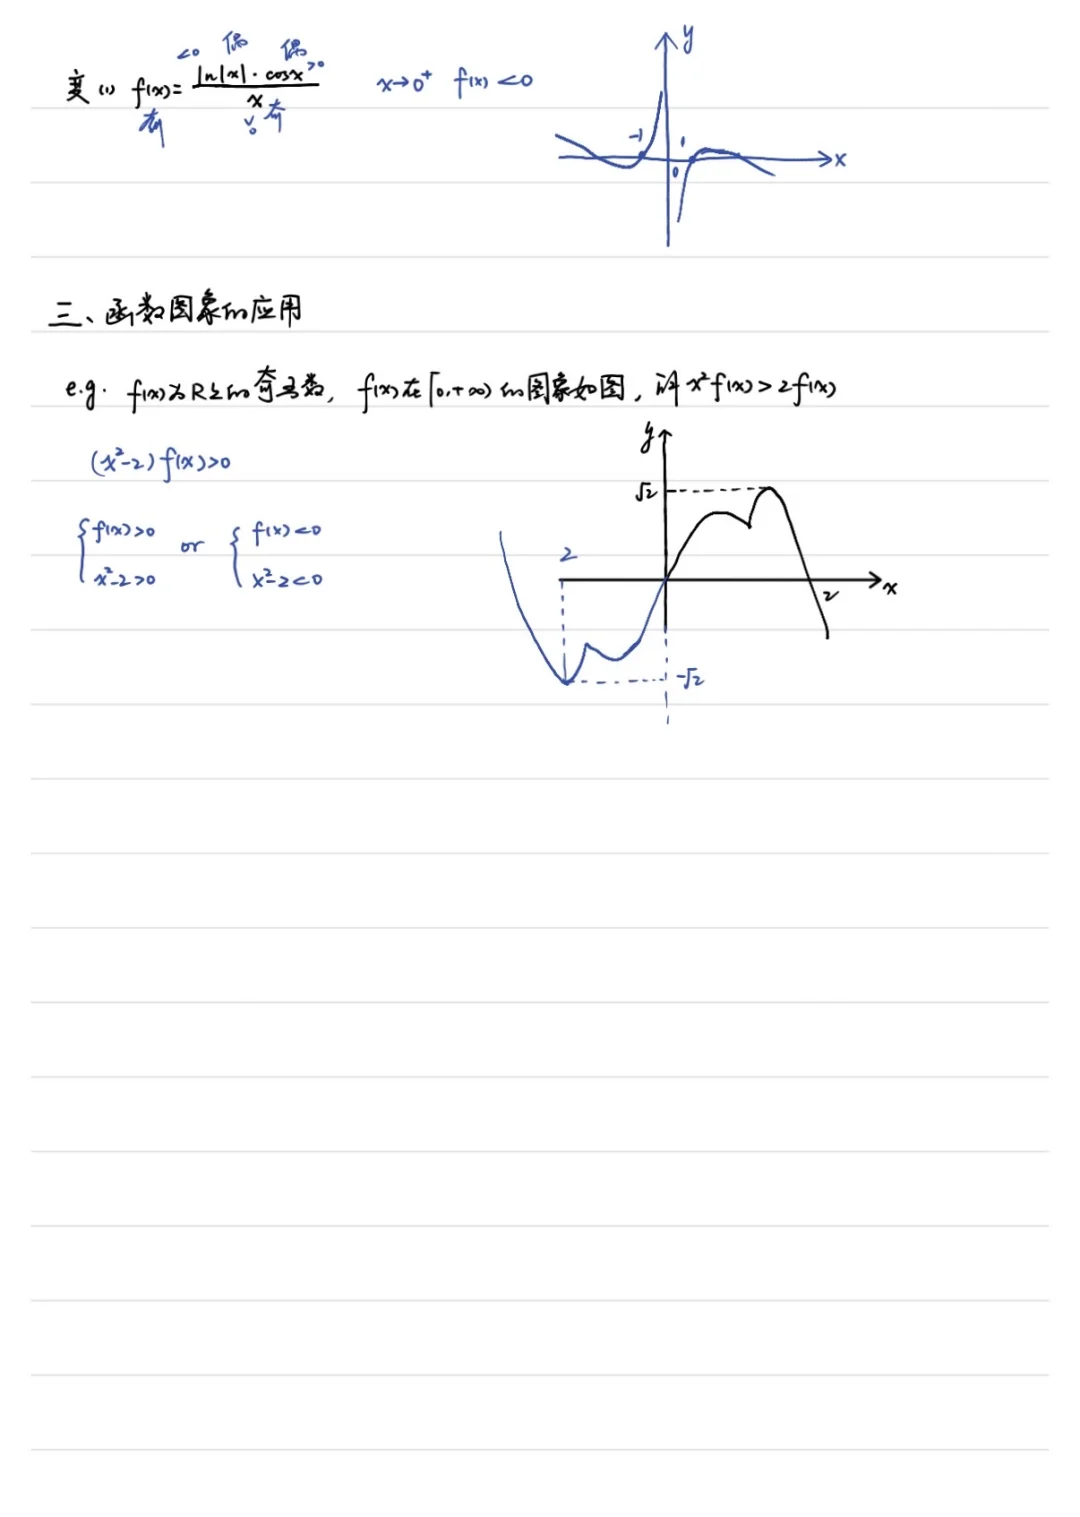 <0 偶 偶 >0
变(1) f(x)= ln|x|·cosx / x    x→0⁺ f(x)<0
奇 >0 奇
y
-1 1
0 x
三、函数图象的应用
e.g. f(x)为R上的奇函数, f(x)在[0,+∞)的图象如图, 解x²f(x)>2f(x)
(x²-2)f(x)>0
{ f(x)>0 x²-2>0 or { f(x)<0 x²-2<0
y
√2
2
2 x
-√2